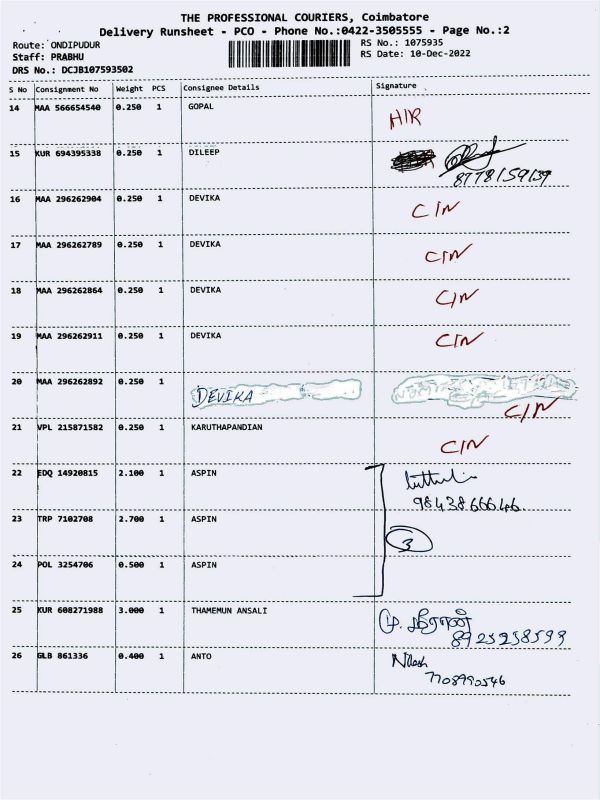 THE PROFESSIONAL COURIERS, Coimbatore
Delivery Runsheet - PCO - Phone No.:0422-3505555 - Page No.:2
Route: ONDIPUDUR
RS No.: 1075935
Staff: PRABHU
RS Date: 10-Dec-2022
DRS No.: DCJB107593502
S No Consignment No Weight PCS Consignee Details Signature
14 MAA 566654540 0.250 1 GOPAL
15 KUR 694395338 0.250 1 DILEEP
8778159139
16 MAA 296262904 0.250 1 DEVIKA C/N
17 MAA 296262789 0.250 1 DEVIKA C/N
18 MAA 296262864 0.250 1 DEVIKA C/N
19 MAA 296262911 0.250 1 DEVIKA C/N
20 MAA 296262892 0.250 1 DEVIKA C/N
21 VPL 215871582 0.250 1 KARUTHAPANDIAN C/N
22 EDQ 14920815 2.100 1 ASPIN
9843866646
23 TRP 7102708 2.700 1 ASPIN
3
24 POL 3254706 0.500 1 ASPIN
25 KUR 608271988 3.000 1 THAMEMUN ANSALI
8925238599
26 GLB 861336 0.400 1 ANTO
7708990546